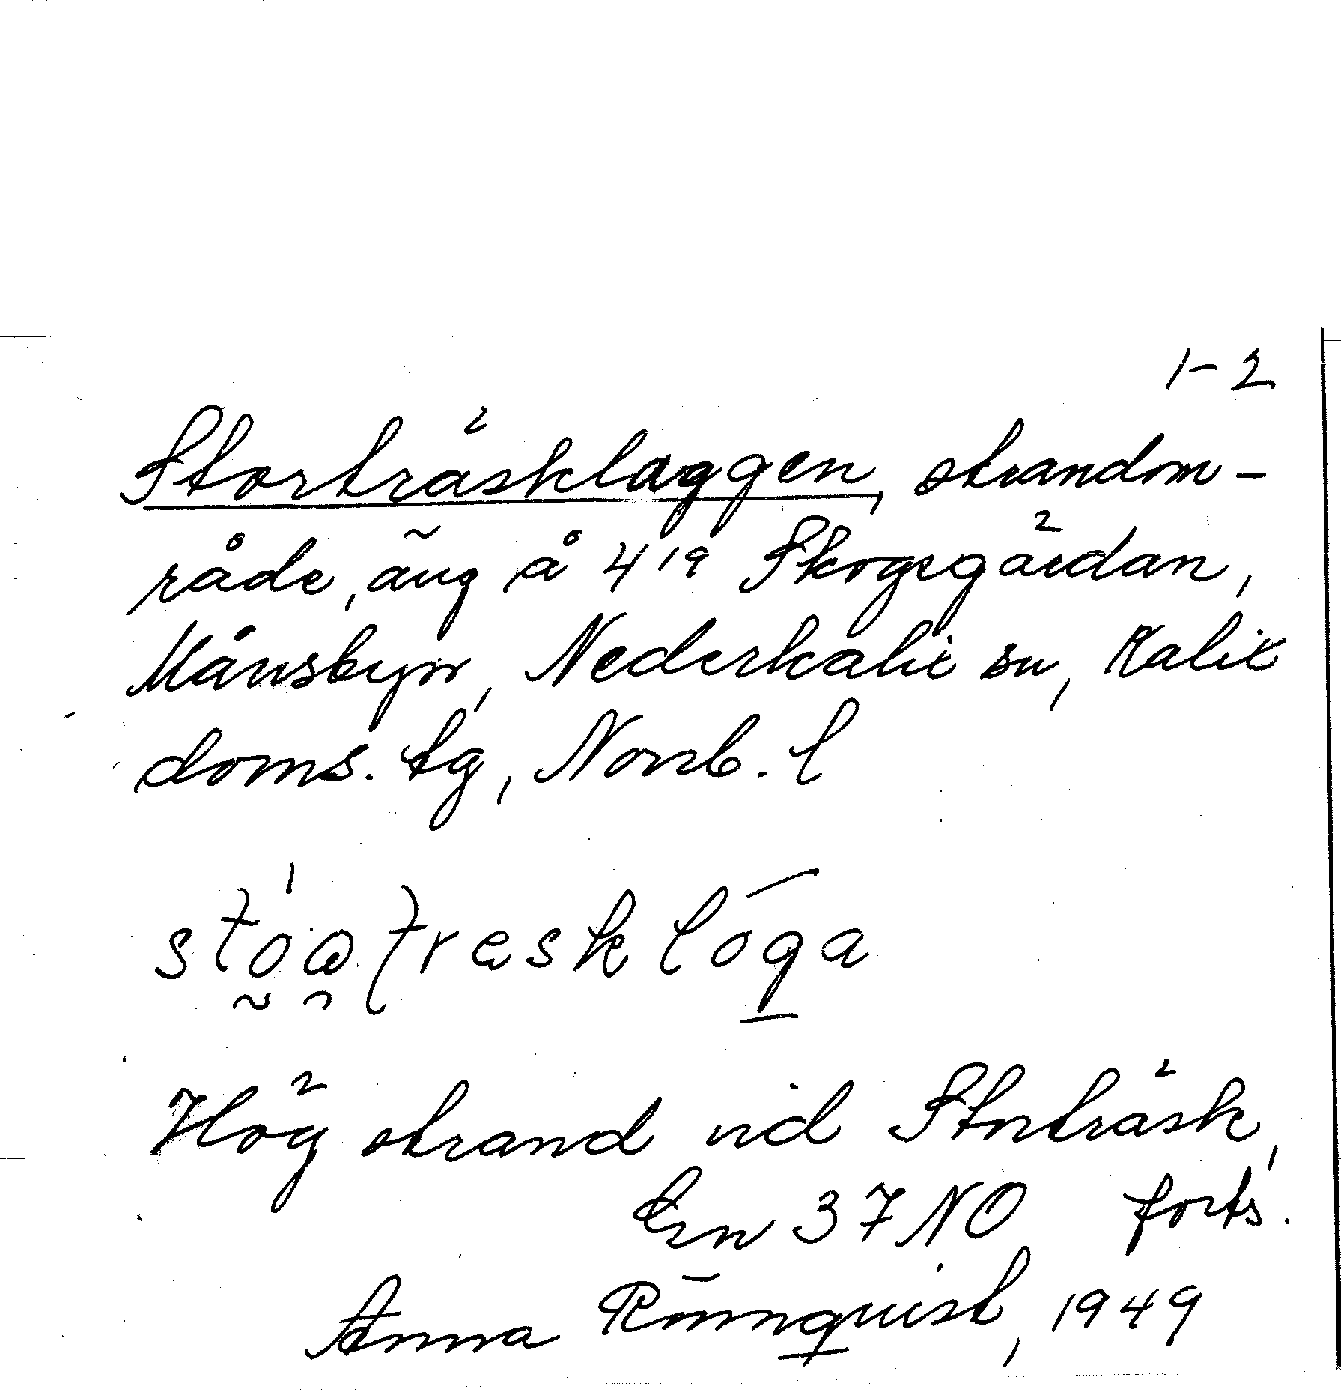 1-2
Storträsklaggen, strandom-
råde, äng å 4¹⁹ Skogsgärdan,
Månsbyn, Nederkalix sn, Kalix
doms. tg, Norrb. l
Hög strand vid Storträsk,
En 37 NO forts.
Anna Rönnquist, 1949